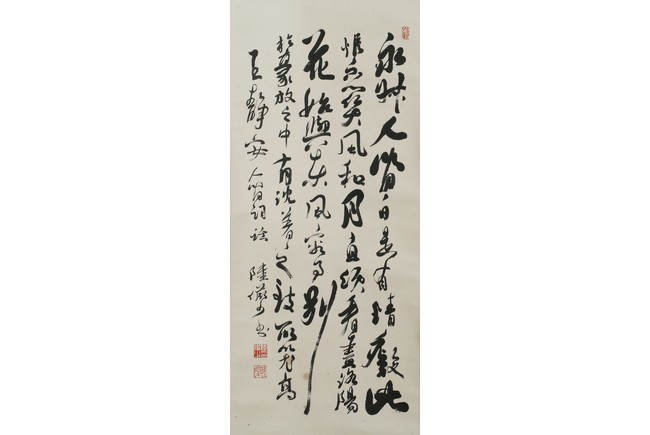 永叔人間自是有情癡此
恨不關風和月直須看盡洛陽
花始與春風容易別
於豪放之中有沈著之致所以尤高
王靜安人間詞話 陸儼少書